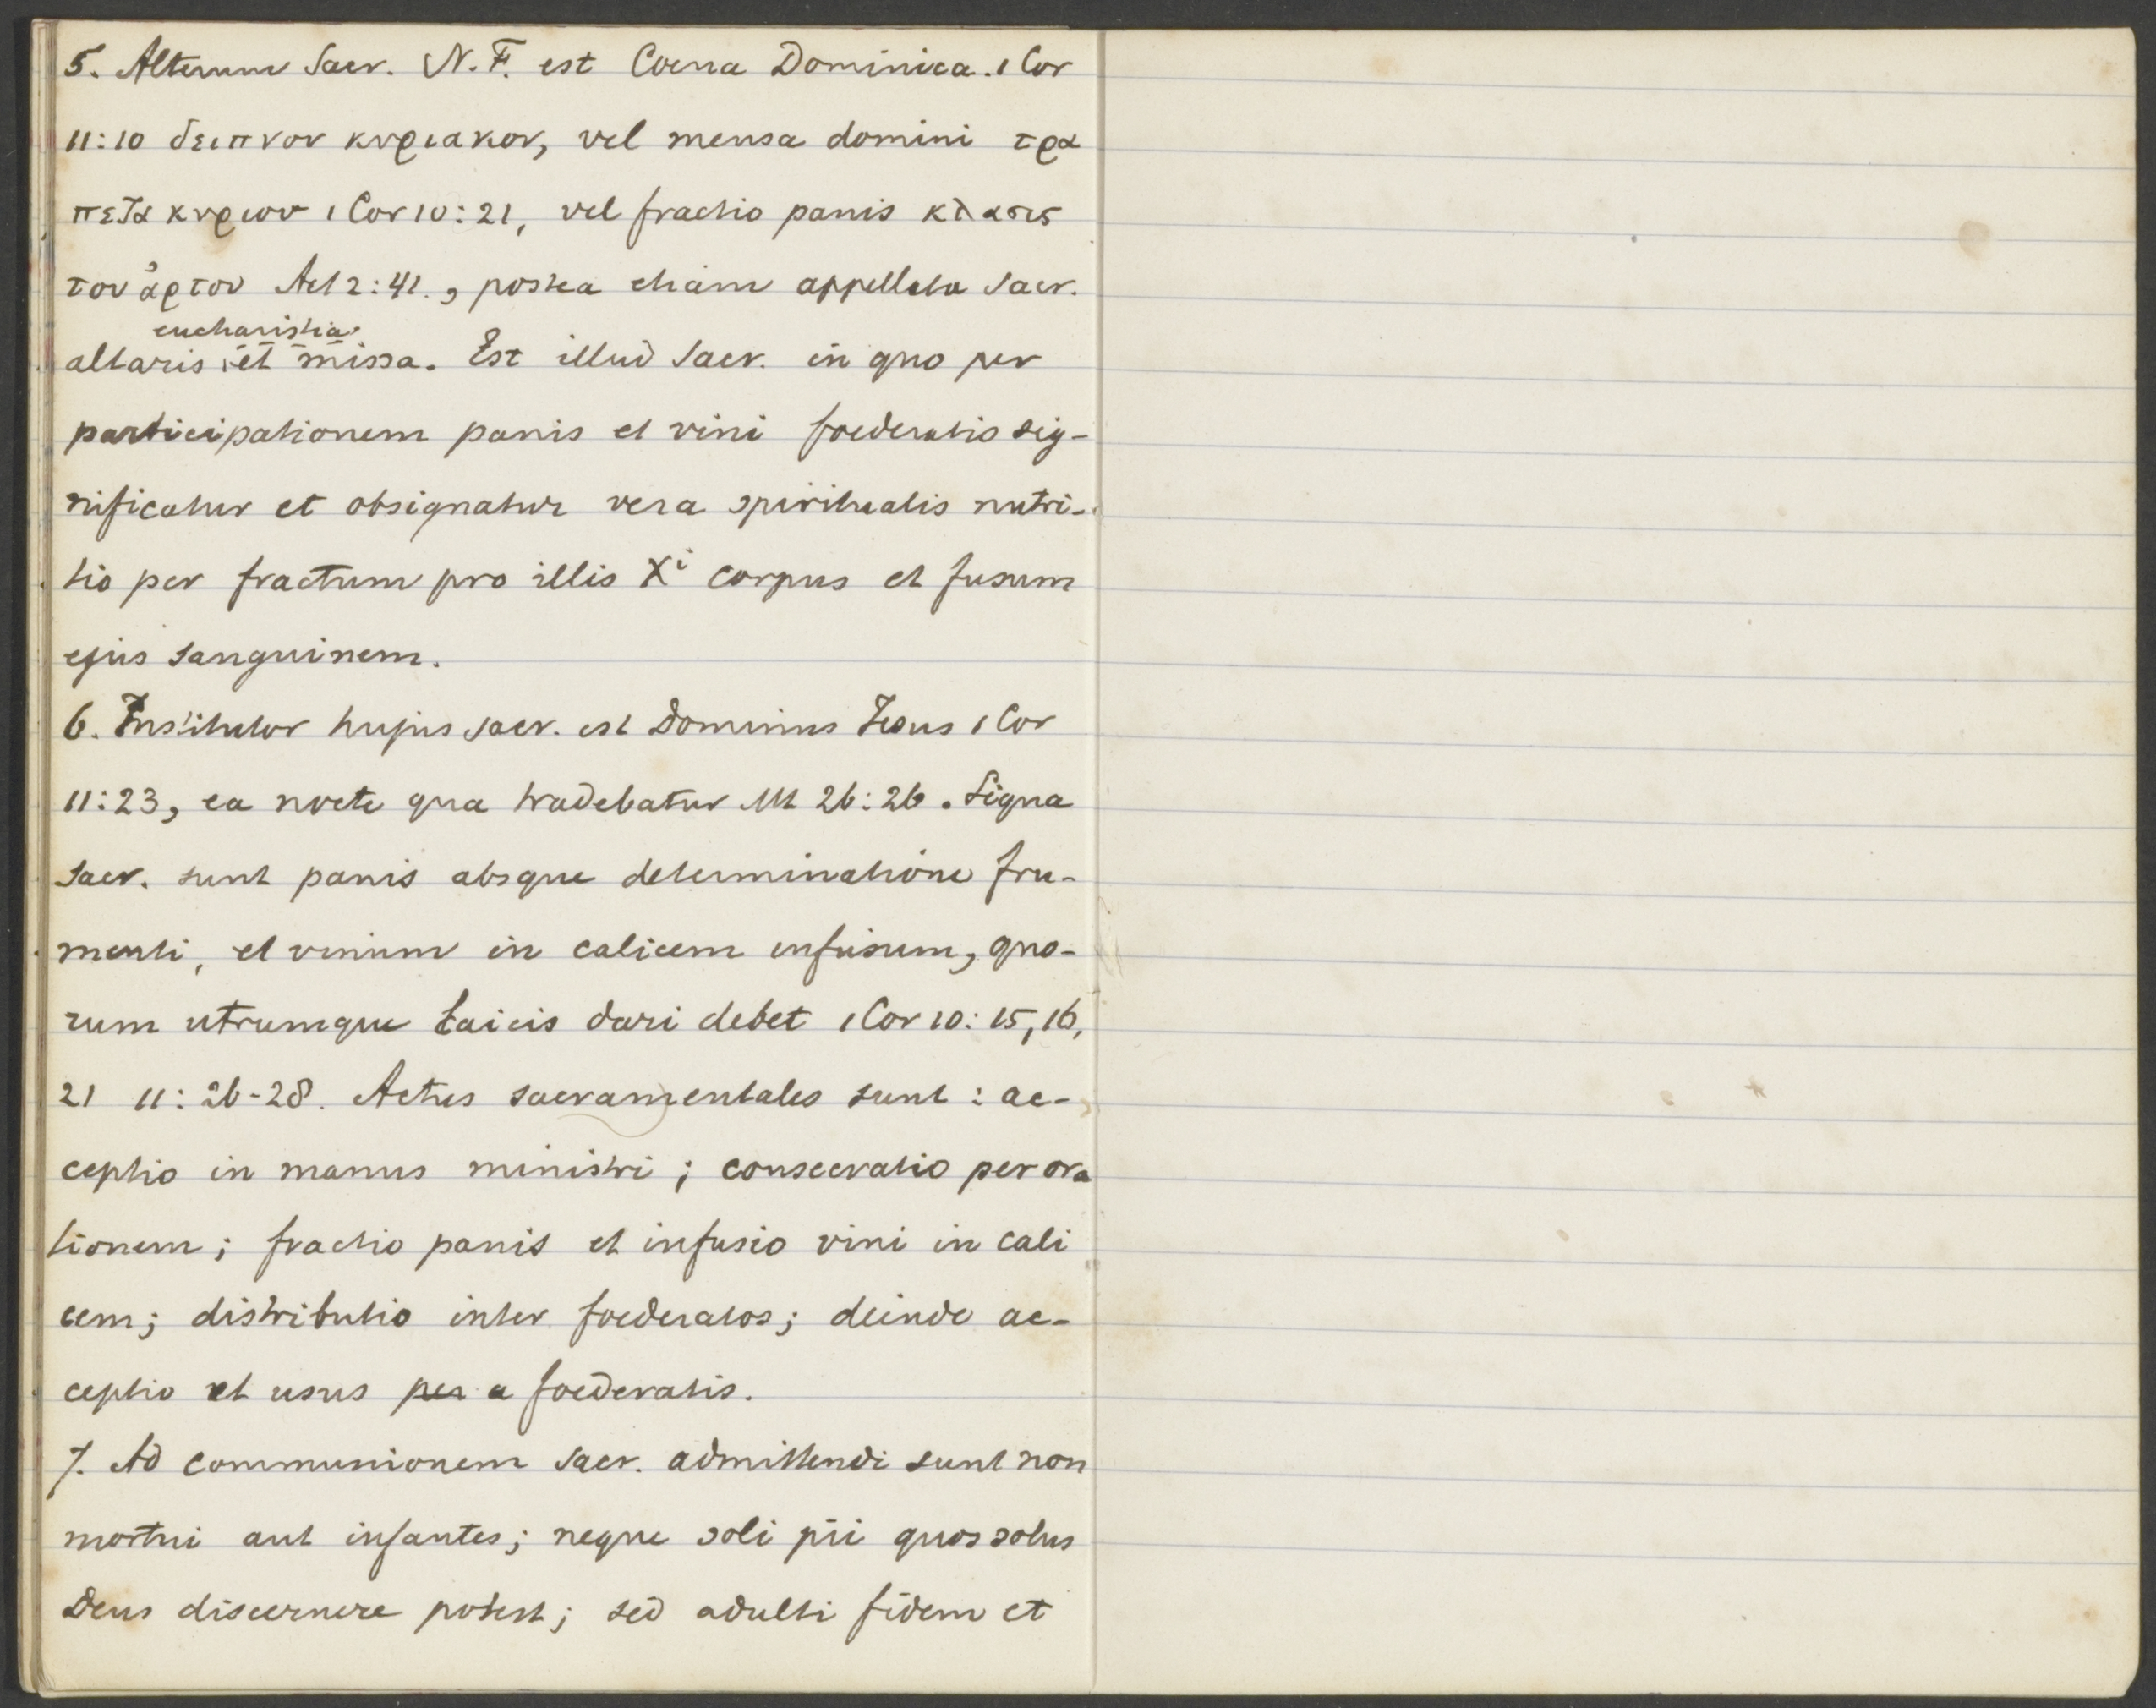 5. Alterum Sacr. N.F. est Coena Dominica. 1 Cor
11:10 δειπνον κυριακον, vel mensa domini τρα
πεζα κυριου 1 Cor 10:21, vel fractio panis κλασις
του ἀρτου Act 2:41., postea etiam appellata Sacr.
eucharistia
altaris et missa. Est illud Sacr. in quo per
participationem panis et vini foederatio sig-
nificatur et obsignatur vera spiritualis nutri-
tio per fractum pro illis Xi corpus et fusum
ejus sanguinem.
6. Institutor hujus sacr. est Dominus Jesus 1 Cor
11:23, ea nocte qua tradebatur Mt 26:26. Signa
Sacr. sunt panis absque determinatione fru-
menti, et vinum in calicem infusum, quo-
rum utrumque Laicis dari debet 1 Cor 10:15,16,
21 11:26-28. Actus sacramentales sunt: ac-
ceptio in manus ministri; consecratio per ora
tionem; fractio panis et infusio vini in cali
cem; distributio inter foederatos; deinde ac-
ceptio et usus per a foederatis.
7. Ad communionem Sacr. admittendi sunt non
mortui aut infantes; neque soli pii quos solus
Deus discernere potest; sed adulti fidem et